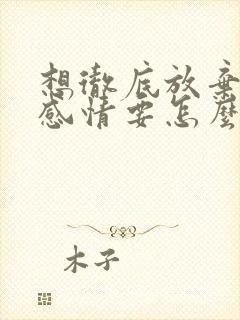 想徹底放棄
感情要怎麼
木子